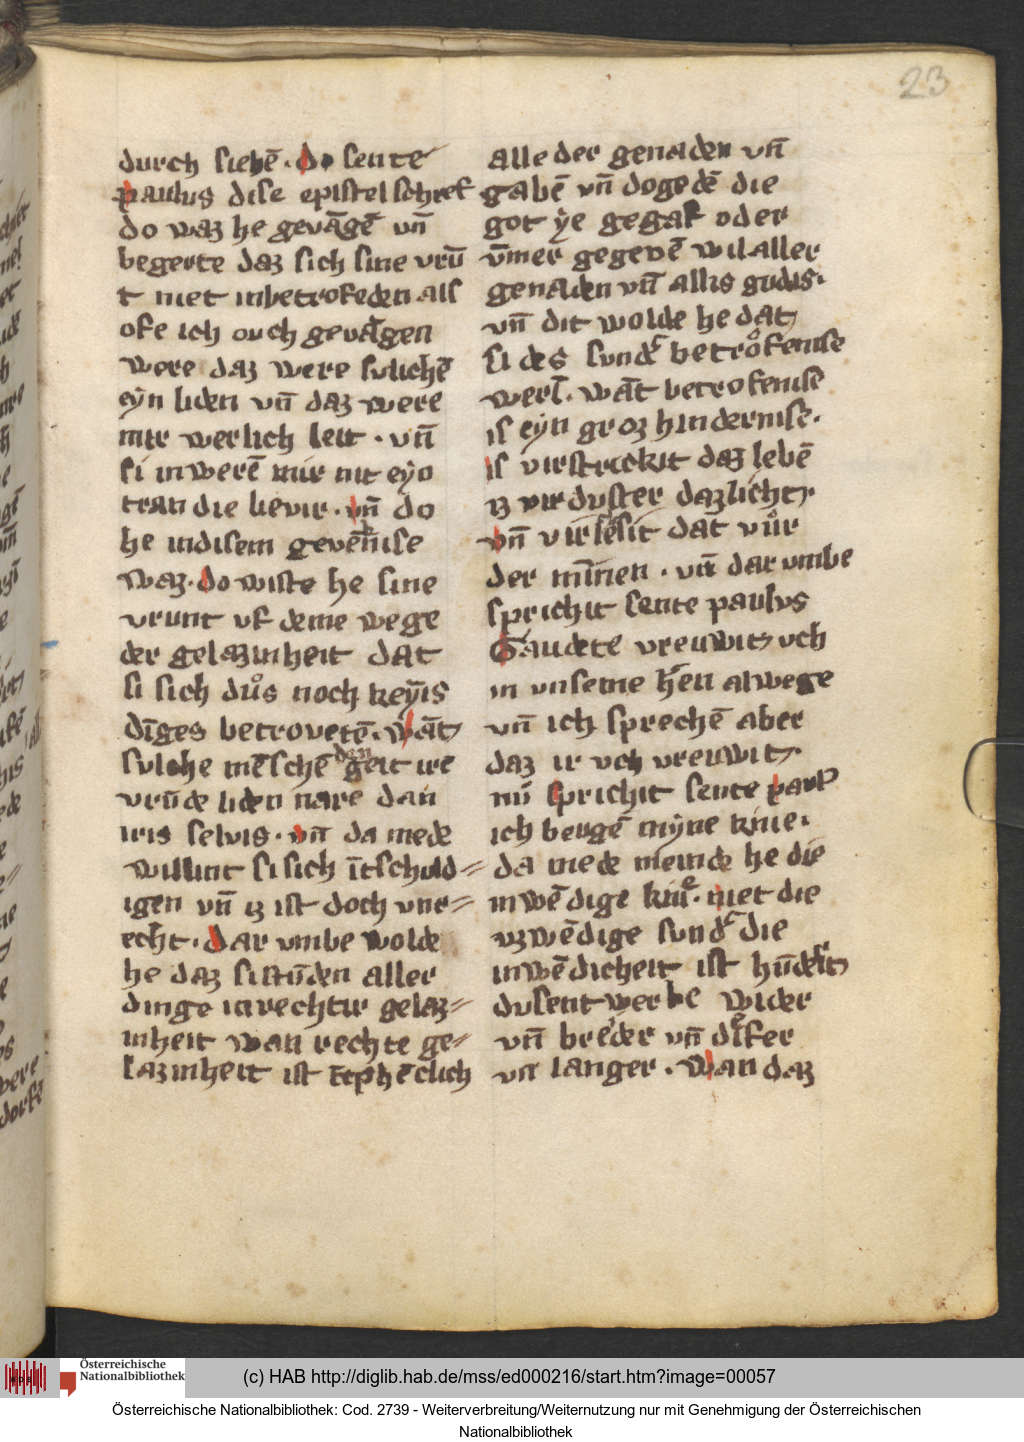 23
durch siehē · do sente
paulus dise epistel schref
do waz he gevāgē vn̄
begerte daz sich sine vrū
t niet inbetrofeden als
ofe ich ouch gevāgen
were daz were sulichē
eyn liden vn̄ daz were
mir werlich leit · vn̄
si inwerē mir nit eyn
tran die lievir · vn̄ do
he indisem gevēknise
waz · do wiste he sine
vrunt uf deme wege
der gelazinheit dat
si sich důs noch keyīs
dīges betrovetē · wāt
sulche mēschē den geit ire
vrūde liden nare dan
iris selvis · vn̄ da mede
willint si sich ītschuld=
igen vn̄ iz ist doch vnr=
echt · Dar vmbe wolde
he daz si stūden aller
dinge in rechtir gelaz=
inheit wan rechte ge=
lazinheit ist
alle der genaden vn̄
gabē vn̄ dogedē die
got ye gegaf oder
v̄mer gegevē wil aller
genaden vn̄ allis gudis ·
vn̄ dit wolde he dat
si des sund' betrofenise
werī · wāt betrofenise
is eyn groz hindernise ·
is virstrickit daz lebē
iz virduster daz licht
vn̄ virlesit dat vůr
der mīnen · vn̄ dar vmbe
sprichit sente paulus
Gaudete vreuwit uch
in vnseme hēn alwege
vn̄ ich sprechē aber
daz ir uch vreuwit ·
nū sprichit sente paul'
ich beugē myne knie ·
da mede meinde he die
inwēdige knie · niet die
uzwēdige sund' die
inwēdicheit ist hūdert
dusent werbe wider
vn̄ breder vn̄ difer
vn̄ langer · Wan daz
(c) HAB http://diglib.hab.de/mss/ed000216/start.htm?image=00057
Österreichische
Nationalbibliothek
Österreichische Nationalbibliothek: Cod. 2739 - Weiterverbreitung/Weiternutzung nur mit Genehmigung der Österreichischen
Nationalbibliothek